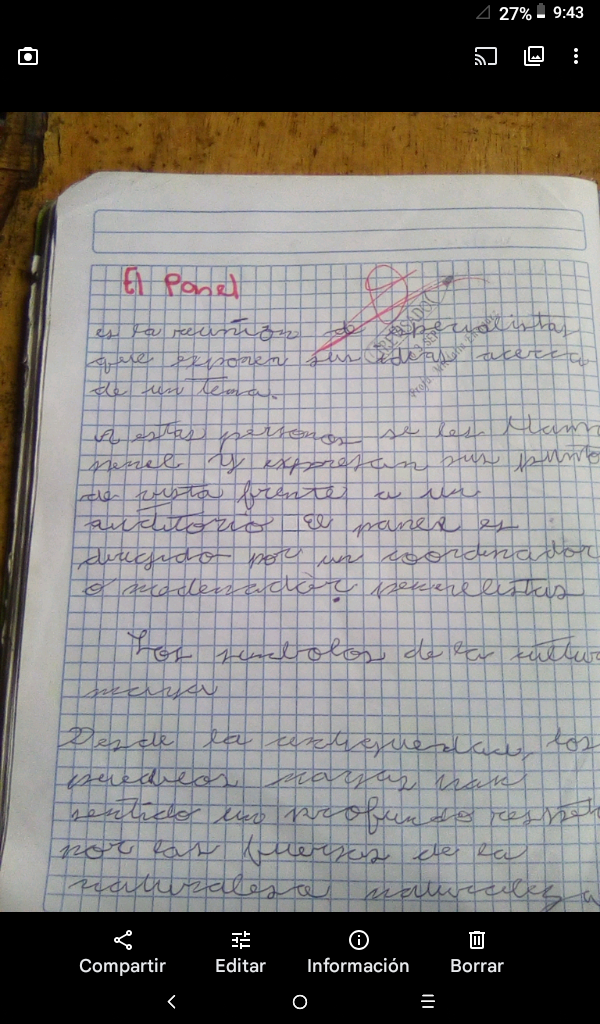 27% 9:43
El Panel
REVISADO
es la reunión de especialistas
que exponen sus ideas acerca
de un tema.
A estas personas se les llam
y expresan sus punto
de vista frente a un
auditorio El panel es
dirigido por un coordinador
o moderador
Los simbolos de la cultur
maya
Desde la los
mayas han
sentido un profundo respet
por las fuerzas de la
naturalesa naturaleza
Compartir Editar Información Borrar